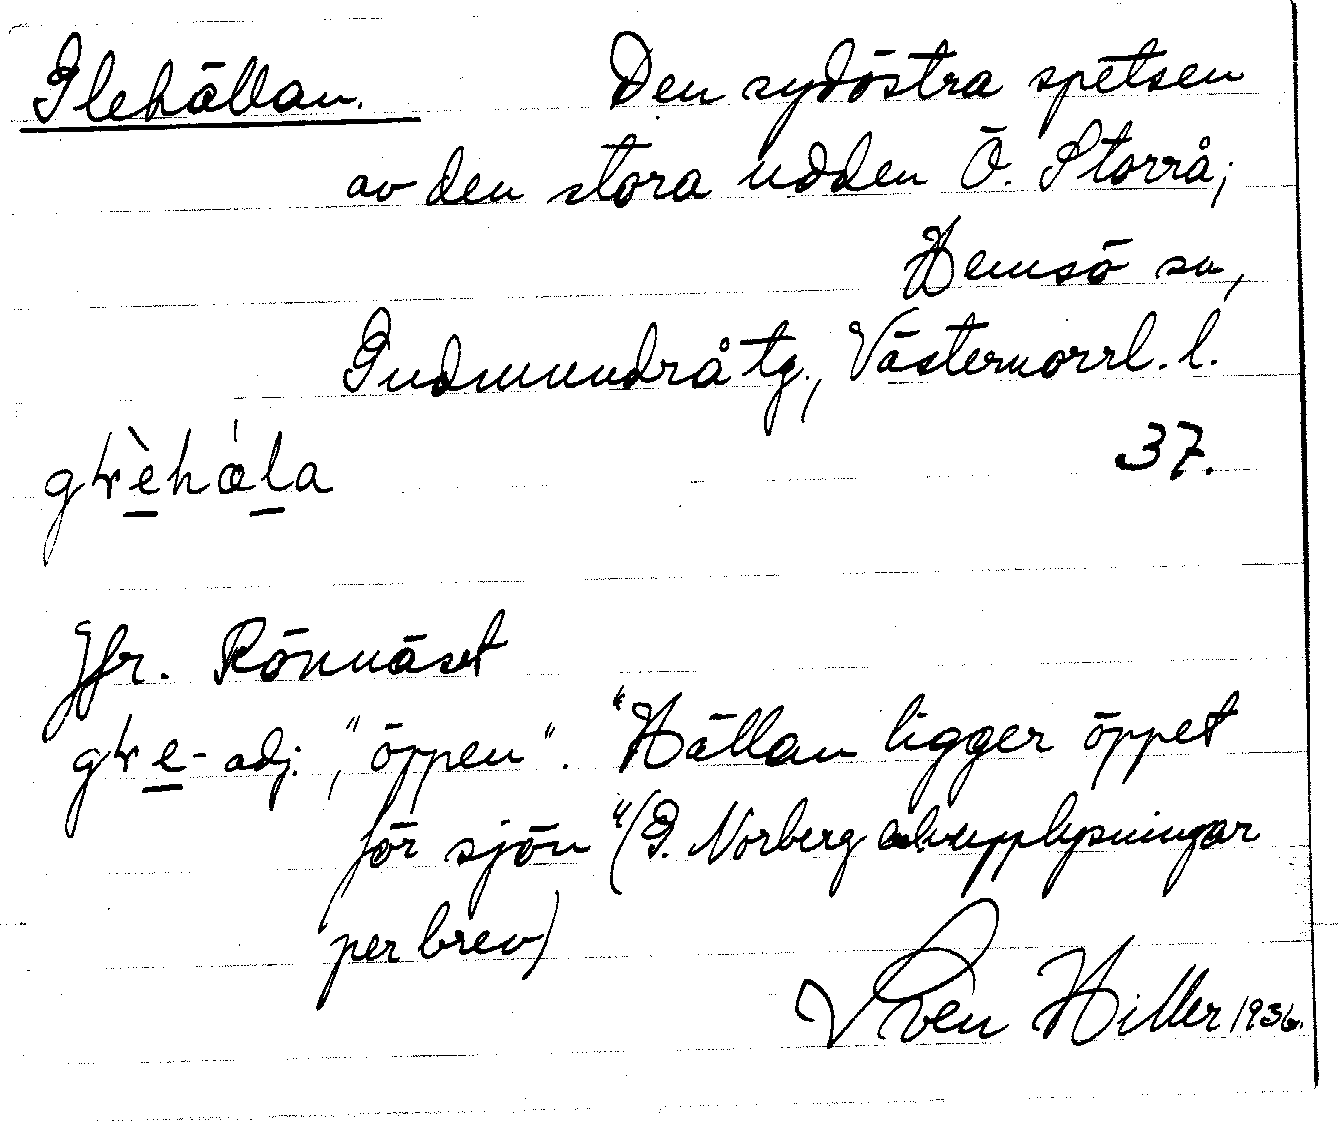 Glehällan. Den sydöstra spetsen
av den stora udden Ö. Storrå;
Hemsö sn,
Gudmundrå tg., Västernorrl. l.
37.
gɬèhæ̀la
Jfr. Rönnäset
gɬe- adj., "öppen". "Hällan ligger öppet
för sjön" (G. Norberg upplysningar
per brev)
Sven Hiller 1936.